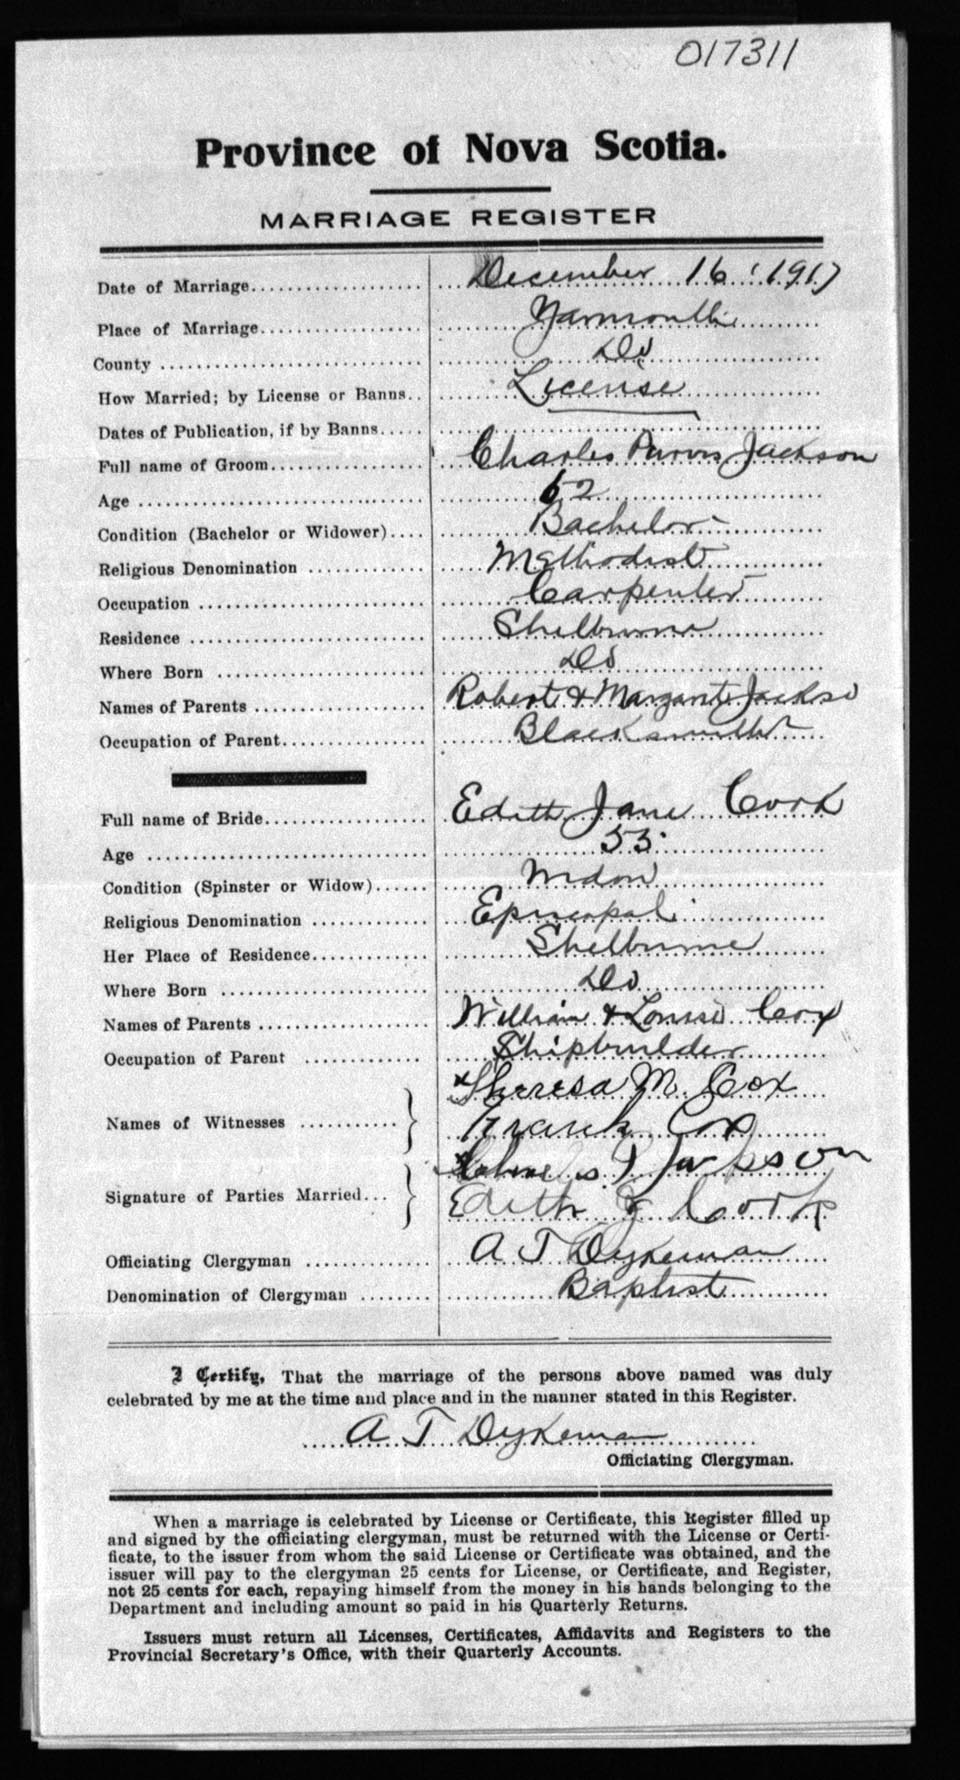 017311
Province of Nova Scotia.
MARRIAGE REGISTER
Date of Marriage December 16 1917
Place of Marriage Yarmouth
County Do
How Married; by License or Banns License
Dates of Publication, if by Banns
Full name of Groom Charles Purvis Jackson
Age 52
Condition (Bachelor or Widower) Bachelor
Religious Denomination Methodist
Occupation Carpenter
Residence Shelburne
Where Born Do
Names of Parents Robert & Margaret Jackso
Occupation of Parent Blacksmith
Full name of Bride Edith Jane Cook
Age 53
Condition (Spinster or Widow) Widow
Religious Denomination Episcopal
Her Place of Residence Shelburne
Where Born Do
Names of Parents William & Louise Cox
Occupation of Parent Shipbuilder
Names of Witnesses Theresa M. Cox
Frank Cox
Signature of Parties Married Charles P Jackson
Edith J Cook
Officiating Clergyman A T Dykeman
Denomination of Clergyman Baptist
I Certify, That the marriage of the persons above named was duly
celebrated by me at the time and place and in the manner stated in this Register.
A T Dykeman
Officiating Clergyman.
When a marriage is celebrated by License or Certificate, this Register filled up
and signed by the officiating clergyman, must be returned with the License or Certi-
ficate, to the issuer from whom the said License or Certificate was obtained, and the
issuer will pay to the clergyman 25 cents for License, or Certificate, and Register,
not 25 cents for each, repaying himself from the money in his hands belonging to the
Department and including amount so paid in his Quarterly Returns.
Issuers must return all Licenses, Certificates, Affidavits and Registers to the
Provincial Secretary's Office, with their Quarterly Accounts.